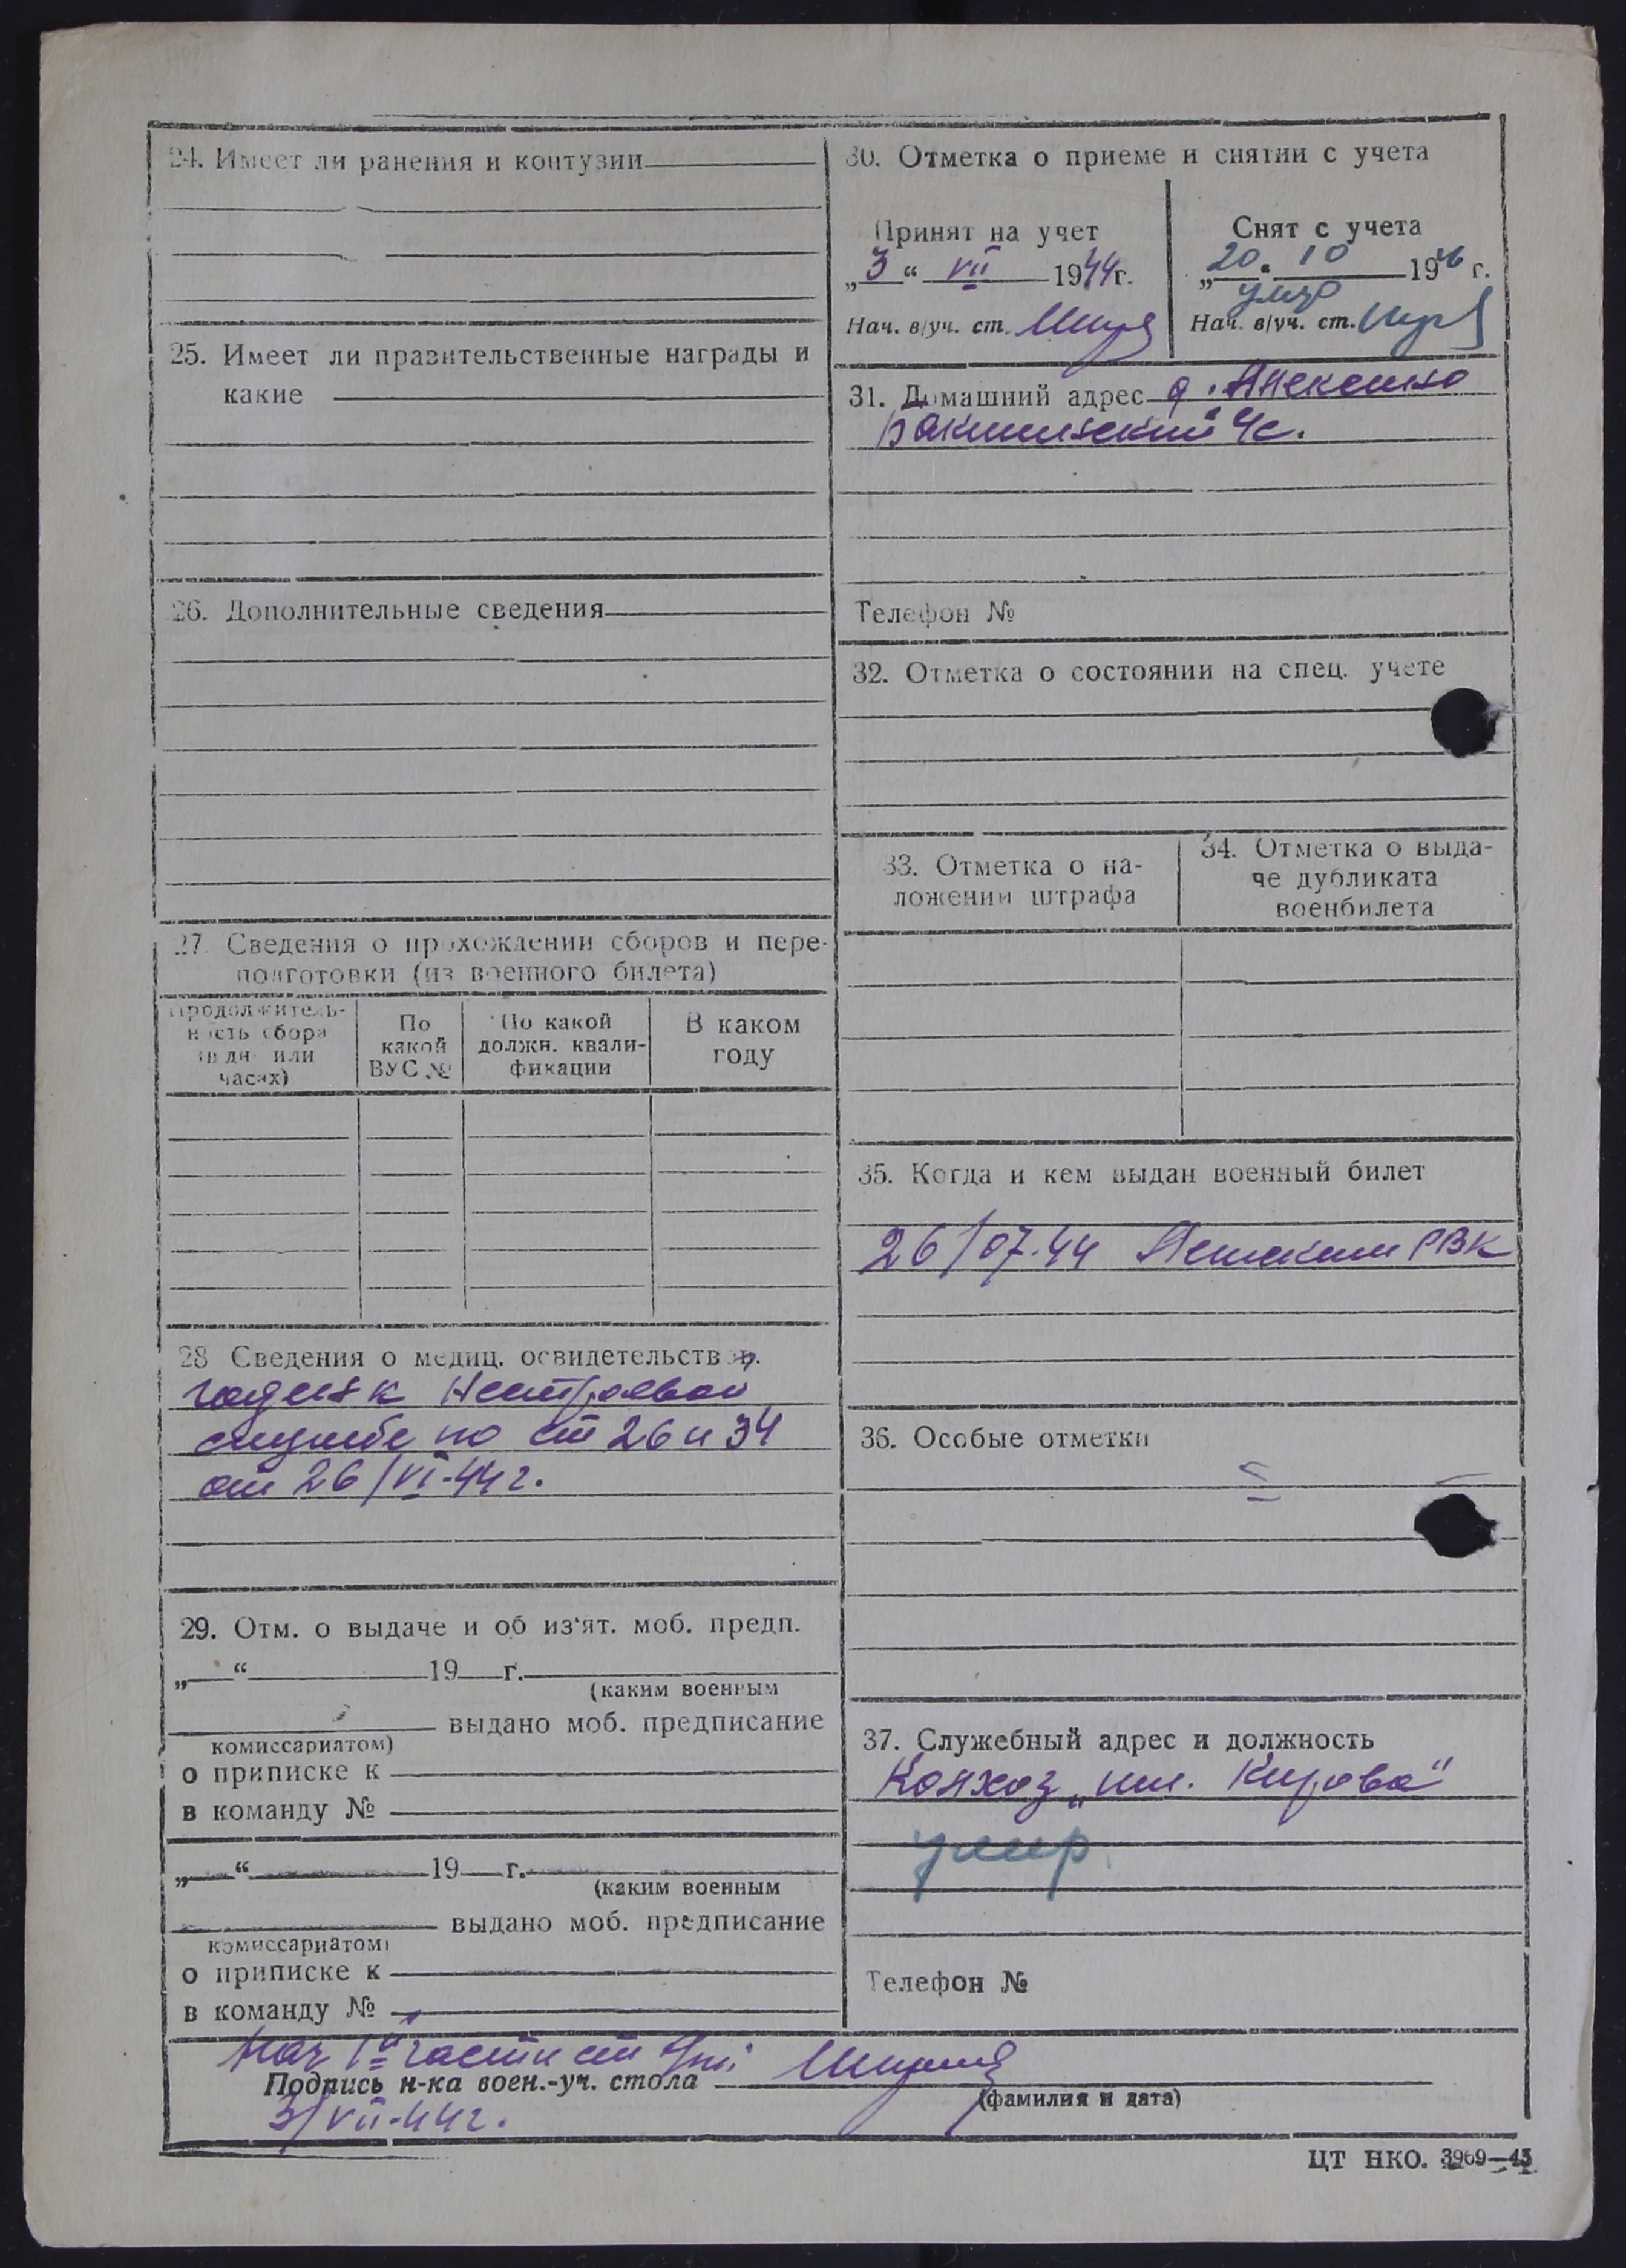 24. Имеет ли ранения и контузии
25. Имеет ли правительственные награды и
какие
26. Дополнительные сведения
27. Сведения о прохождении сборов и пере-
подготовки (из военного билета)
Продолжитель-
ность сбора
(в дн. или
часах)
По
какой
ВУС №
По какой
должн. квали-
фикации
В каком
году
28 Сведения о медиц. освидетельств.
годен к нестроевой
службе по ст 26 и 34
от 26/VI-44 г.
29. Отм. о выдаче и об из'ят. моб. предп.
„ “ 19 г.
(каким военным
выдано моб. предписание
комиссариатом)
о приписке к
в команду №
„ “ 19 г.
(каким военным
выдано моб. предписание
комиссариатом)
о приписке к
в команду №
30. Отметка о приеме и снятии с учета
Принят на учет
„3“ VII 1944 г.
Нач. в/уч. ст.
Снят с учета
„20. 10 1946 г.
умер
Нач. в/уч. ст.
31. Домашний адрес д. Алексино
с/с.
Телефон №
32. Отметка о состоянии на спец. учете
33. Отметка о на-
ложении штрафа
34. Отметка о выда-
че дубликата
военбилета
35. Когда и кем выдан военный билет
26/07.44 РВК
36. Особые отметки
37. Служебный адрес и должность
Колхоз „им. Кирова“
умер
Телефон №
Нач 1й части ст
Подпись н-ка воен.-уч. стола
(фамилия и дата)
3/VII-44 г.
ЦТ НКО. 3969—43